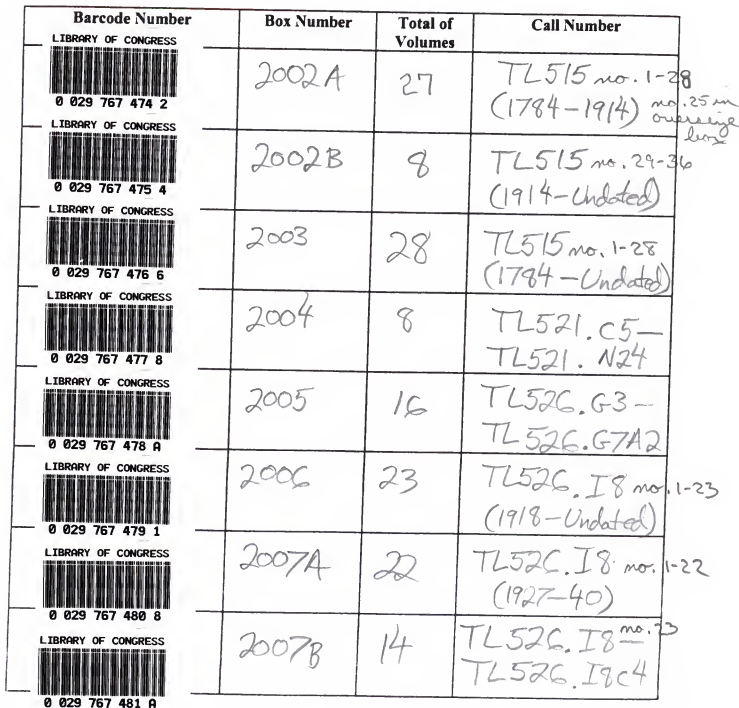 Barcode Number Box Number Total of Volumes Call Number
LIBRARY OF CONGRESS
0 029 767 474 2
2002A 27 TL515 no. 1-28
(1784-1914) no. 25 in
oversize
box
LIBRARY OF CONGRESS
0 029 767 475 4
2002B 8 TL515 no. 29-36
(1914-Undated)
LIBRARY OF CONGRESS
0 029 767 476 6
2003 28 TL515 no. 1-28
(1784-Undated)
LIBRARY OF CONGRESS
0 029 767 477 8
2004 8 TL521.C5-
TL521.N24
LIBRARY OF CONGRESS
0 029 767 478 A
2005 16 TL526.G3-
TL526.G7A2
LIBRARY OF CONGRESS
0 029 767 479 1
2006 23 TL526.I8 no. 1-23
(1918-Undated)
LIBRARY OF CONGRESS
0 029 767 480 8
2007A 22 TL526.I8 no. 1-22
(1927-40)
LIBRARY OF CONGRESS
0 029 767 481 A
2007B 14 TL526.I8 no. 23-
TL526.I8C4